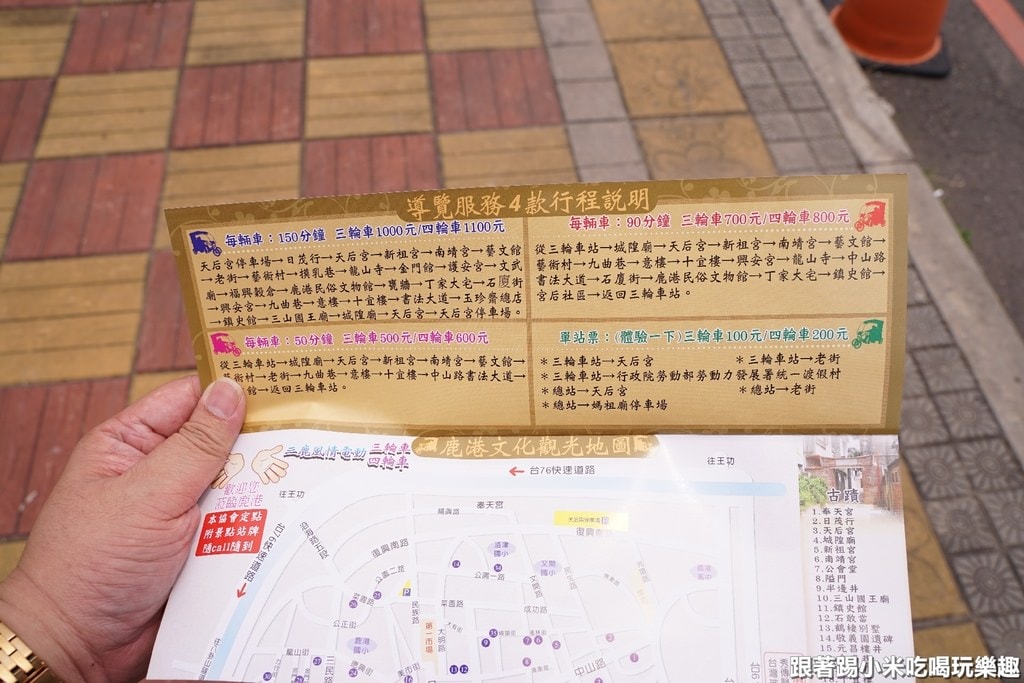 導覽服務4款行程說明
每輛車：150分鐘 三輪車1000元/四輪車1100元
天后宮停車場→日茂行→天后宮→新祖宮→南靖宮→藝文館
→老街→藝術村→摸乳巷→龍山寺→金門館→護安宮→文武
廟→福興穀倉→鹿港民俗文物館→甕牆→丁家大宅→石廈街
→興安宮→九曲巷→意樓→十宜樓→書法大道→玉珍齋總店
→鎮史館→三山國王廟→城隍廟→天后宮→天后宮停車場。
每輛車：90分鐘 三輪車700元/四輪車800元
從三輪車站→城隍廟→天后宮→新祖宮→南靖宮→藝文館→
藝術村→九曲巷→意樓→十宜樓→興安宮→龍山寺→中山路
書法大道→石廈街→鹿港民俗文物館→丁家大宅→鎮史館→
宮后社區→返回三輪車站。
每輛車：50分鐘 三輪車500元/四輪車600元
從三輪車站→城隍廟→天后宮→新祖宮→南靖宮→藝文館→
術村→老街→九曲巷→意樓→十宜樓→中山路書法大道→
館→返回三輪車站。
單站票：(體驗一下)三輪車100元/四輪車200元
＊三輪車站→天后宮
＊三輪車站→老街
＊三輪車站→行政院勞動部勞動力發展署統一渡假村
＊總站→天后宮
＊總站→老街
＊總站→媽祖廟停車場
三鹿風情電動 三輪車
四輪車
鹿港文化觀光地圖
歡迎您
蒞臨鹿港
本協會定點
附景點站牌
隨call隨到
台76快速道路
往王功
往王功
奉天宮
復興南路
公園二路
公園一路
菜園路
成功路
公正街
民族路
大明路
第一市場
三民路
龍山街
美市街
中山路
文開國小
鹿港國小
鹿港高中
台76快速道路
古蹟
1.奉天宮
2.日茂行
3.天后宮
4.城隍廟
5.新祖宮
6.南靖宮
7.公會堂
8.隘門
9.半邊井
10.三山國王廟
11.鎮史館
12.石敢當
13.鶴棲別墅
14.敬義園遺碑
15.元昌樓井
跟著踢小米吃喝玩樂趣